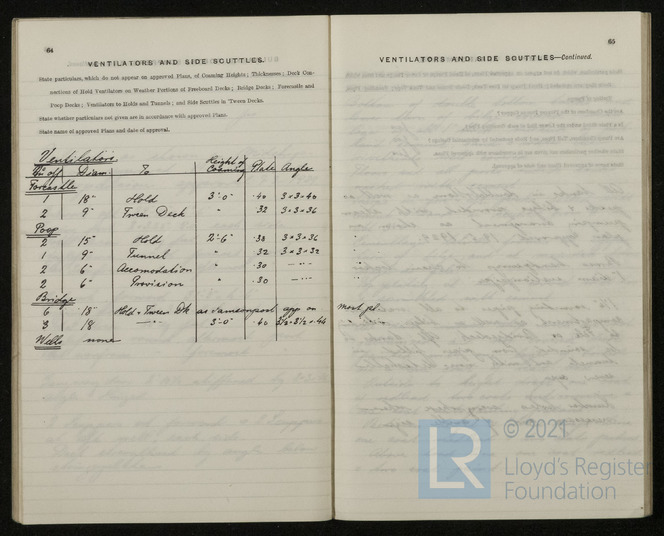 64
VENTILATORS AND SIDE SCUTTLES.
State particulars, which do not appear on approved Plans, of Coaming Heights; Thicknesses; Deck Con-
nections of Hold Ventilators on Weather Portions of Freeboard Decks; Bridge Decks; Forecastle and
Poop Decks; Ventilators to Holds and Tunnels; and Side Scuttles in 'Tween Decks.
State whether particulars not given are in accordance with approved Plans.
State name of approved Plans and date of approval.
Ventilators
No off Diam. To Height of Coaming Plate Angle
Forcastle
1 18" Hold 3'-0" .40 3 x 3 x 40
2 9" Tween Deck " 32 3 x 3 x 36
Poop
2 15" Hold 2'-6" .38 3 x 3 x 36 "
1 9" Tunnel " 32 3 x 3 x 32 "
2 6" Accomodation " .30 — " — "
2 6" Provision " .30 — " — "
Bridge
6 18" Hold & Tween Dk as samson post app on mast pl.
3 18 — " — 3'-0" .40 3½ x 3½ x .44
Wells none
65
VENTILATORS AND SIDE SCUTTLES—Continued.
LR © 2021
Lloyd's Register
Foundation